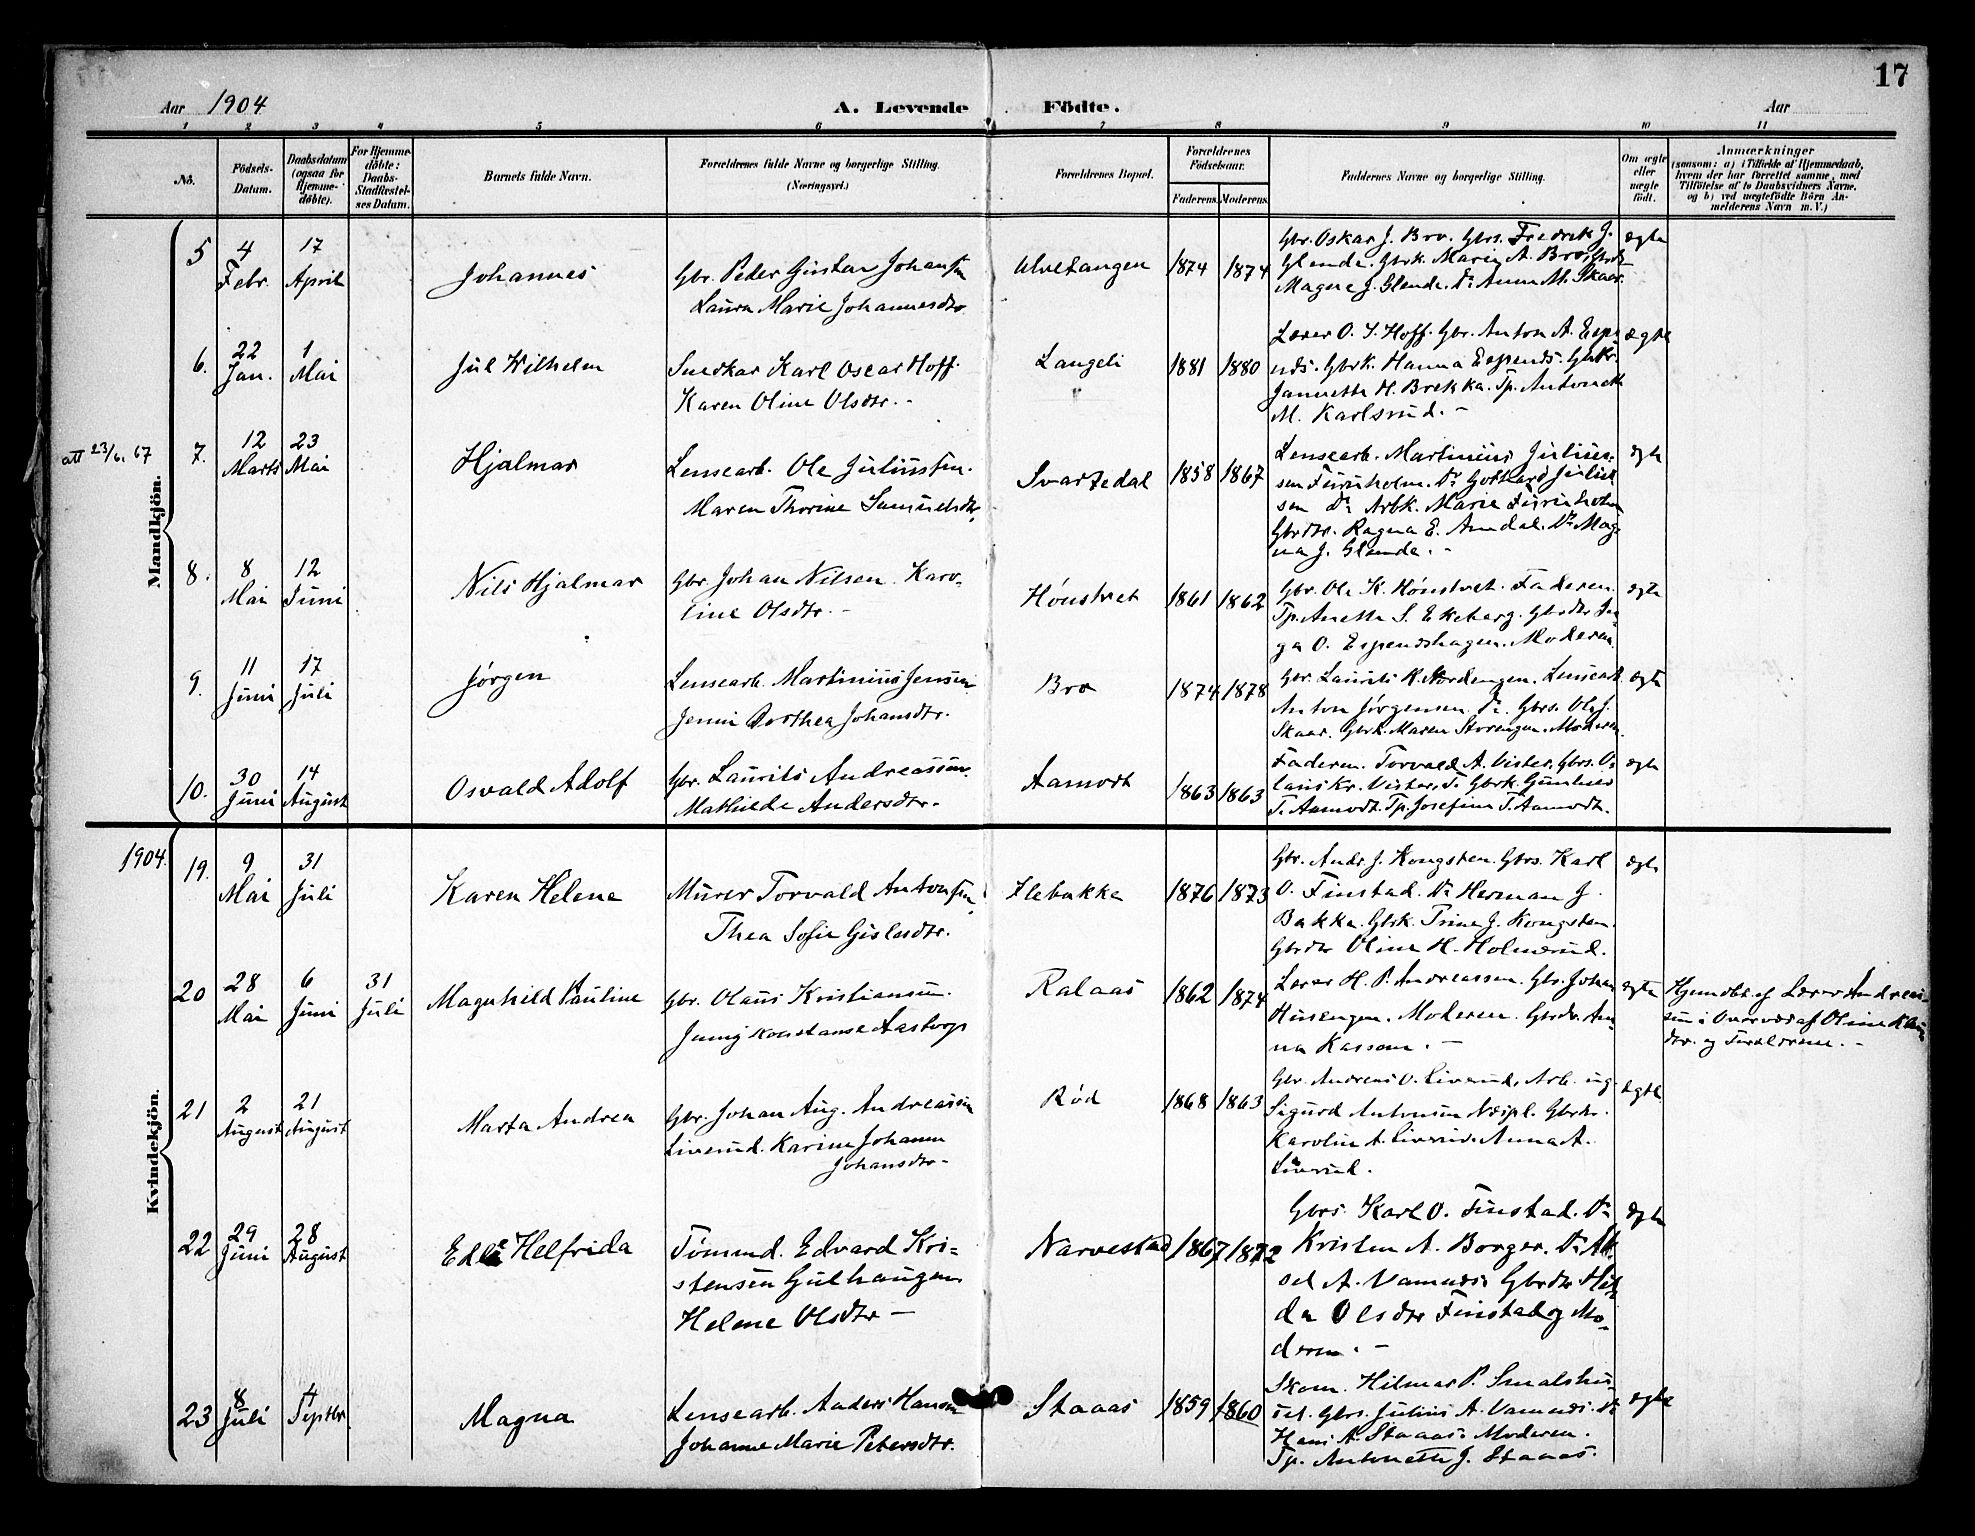 17
Aar 1904 A. Levende Födte. Aar
1 2 3 4 5 6 7 8 9 10 11
No.
Födsels-Datum.
Daabsdatum (ogsaa for Hjemmedöbte).
For Hjemmedöbte: Daabs-Stadfæstelses Datum.
Barnets fulde Navn.
Forældrenes fulde Navne og borgerlige Stilling. (Næringsvei.)
Forældrenes Bopæl.
Forældrenes Födselsaar.
Faderens. Moderens.
Faddernes Navne og borgerlige Stilling.
Om ægte eller uægte födt.
Anmærkninger
(saasom: a) i Tilfælde af Hjemmedaab,
hvem der har forrettet samme, med
Tilföielse af to Daabsvidners Navne,
og b) ved uægtefödte Börn Anmelderens Navn m. V.)
Mandkjön.
5 4 Febr. 17 April Johannes
Gbr. Peder Gustav Johansen
Laura Marie Johannesdtr.
Ulvetangen 1874 1874
Gbr. Oskar J. Bro. Gbrs. Fredrik J.
Glende. Gbrk. Maria A. Bro. Gbrdtr.
Magne J. Glende. Do Anna M. Skaar.
ægte
6. 22 Jan. 1 Mai Jul Vilhelm
Snedkar Karl Oscar Hoff.
Karen Oline Olsdtr. -
Langeli 1881 1880
Lærer O. J. Hoff. Gbr. Anton A. Espe-
nds. Gbrk. Hanna Espends. Gbrk.
Jannette H. Brekka. Tp. Antonette
M. Karlsrud. -
ægte
att 23/6. 67
7. 12 Marts 23 Mai Hjalmar
Lensearb. Ole Juliussen.
Maren Thorine Samuelsdtr.
Svartedal 1858 1867
Lensearb. Martinius Julius-
sen Furuholm. Do Gothard Julius
sen Do Arbk. Marie Furuholm
Gbrdtr. Ragna E. Amdal. Do Mag-
na J. Glende. -
ægte
8. 8 Mai 12 Juni Nils Hjalmar
Gbr. Johan Nilsen. Karo-
line Olsdtr. -
Hønstvet 1861 1862
Gbr. Ole K. Hønstvet. Faderen.
Tp. Anette S. Ekeberg. Gbrdtr. In-
ga O. Espendshagen. Moderen.
ægte
9. 11 Juni 17 Juli Jørgen
Lensearb. Martinius Jensen
Jenni Dorthea Johansdtr.
Bro 1874 1878
Gbr. Laurits K. Nordengen. Lensearb
Anton Jørgensen Do. Gbrs. Ole J.
Skaar. Gbrk. Maren Storengen. Moderen
ægte
10. 30 Juni 14 August Osvald Adolf
Gbr. Laurits Andreassen.
Mathilde Andersdtr. -
Aamodt 1863 1863
Faderen. Torvald A. Vister. Gbrs. O-
laus Kr. Vister. Gbrk. Gunhild
T. Aamodt. Tp. Josefine T. Aamodt.
ægte
1904.
Kvindekjön.
19. 9 Mai 31 Juli Karen Helene
Murer Torvald Antonsen
Thea Sofie Gislesdtr.
Flebakka 1876 1873
Gbr. Andr. J. Kongsten. Gbrs. Karl
O. Finstad. Do Herman J.
Bakka. Gbrk. Trine J. Kongsten.
Gbrdtr Oline H. Holmerud.
ægte
20 28 Mai 6 Juni 31 Juli Magnhild Pauline
Gbr. Olaus Kristiansen.
Jenny Konstanse Aastorp
Ralaas 1862 1874
Lærer H. P. Andreassen. Gbr. Johan
Husengen. Moderen. Gbrdtr. An-
na Kassom. -
ægte
Hjemdbt. af Lærer Andreas-
sen i Overvær af Oline
dtr. og Forældrene. -
21 2 August 21 August Marta Andrea
Gbr. Johan Aug. Andreassen
Liverud. Karine Johanne
Johansdtr-
Rød 1868 1863
Gbr. Andreas O. Liverud, Arb. ug.
Sigurd Antonsen Næspl. Gbrdtr.
Karolin A. Liverud. Anna A.
Liverud.
ægte
22 29 Juni 28 August Edle Helfrida
Tømmd. Edvard Kri-
stensen Gulhaugen
Helene Olsdtr -
Narvestad 1867 1872
Gbrs. Karl O. Finstad. Do
Kristen A. Borger. Do Ak-
sel A. Vamnes. Gbrdtr Hil-
da Olsdtr Finstad og Mo-
deren. -
ægte
23 8 Juli 4 Septbr. Magna
Lensearb. Anders Hansen
Johanne Marie Petersdtr.
Staaas 1859 1860
Skom. Hilmar P. Smalshu-
set. Gbrs. Julius A. Vamnes. Do
Hans A. Staaas. Moderen.
Tp. Antonette J. Staaas.
ægte